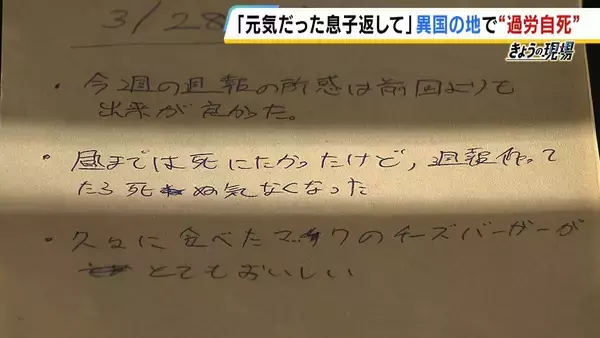 「元気だった息子返して」異国の地で“過労自死”
きょうの現場
3/28
・今週の週報の所感は前回よりも
出来が良かった。
・昼までは死にたかったけど，週報作って
たら死ぬ気なくなった
・久々に食べたマックのチーズバーガーが
とてもおいしい